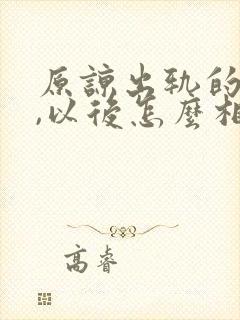 原諒出軌的
,以後怎麼相
高睿